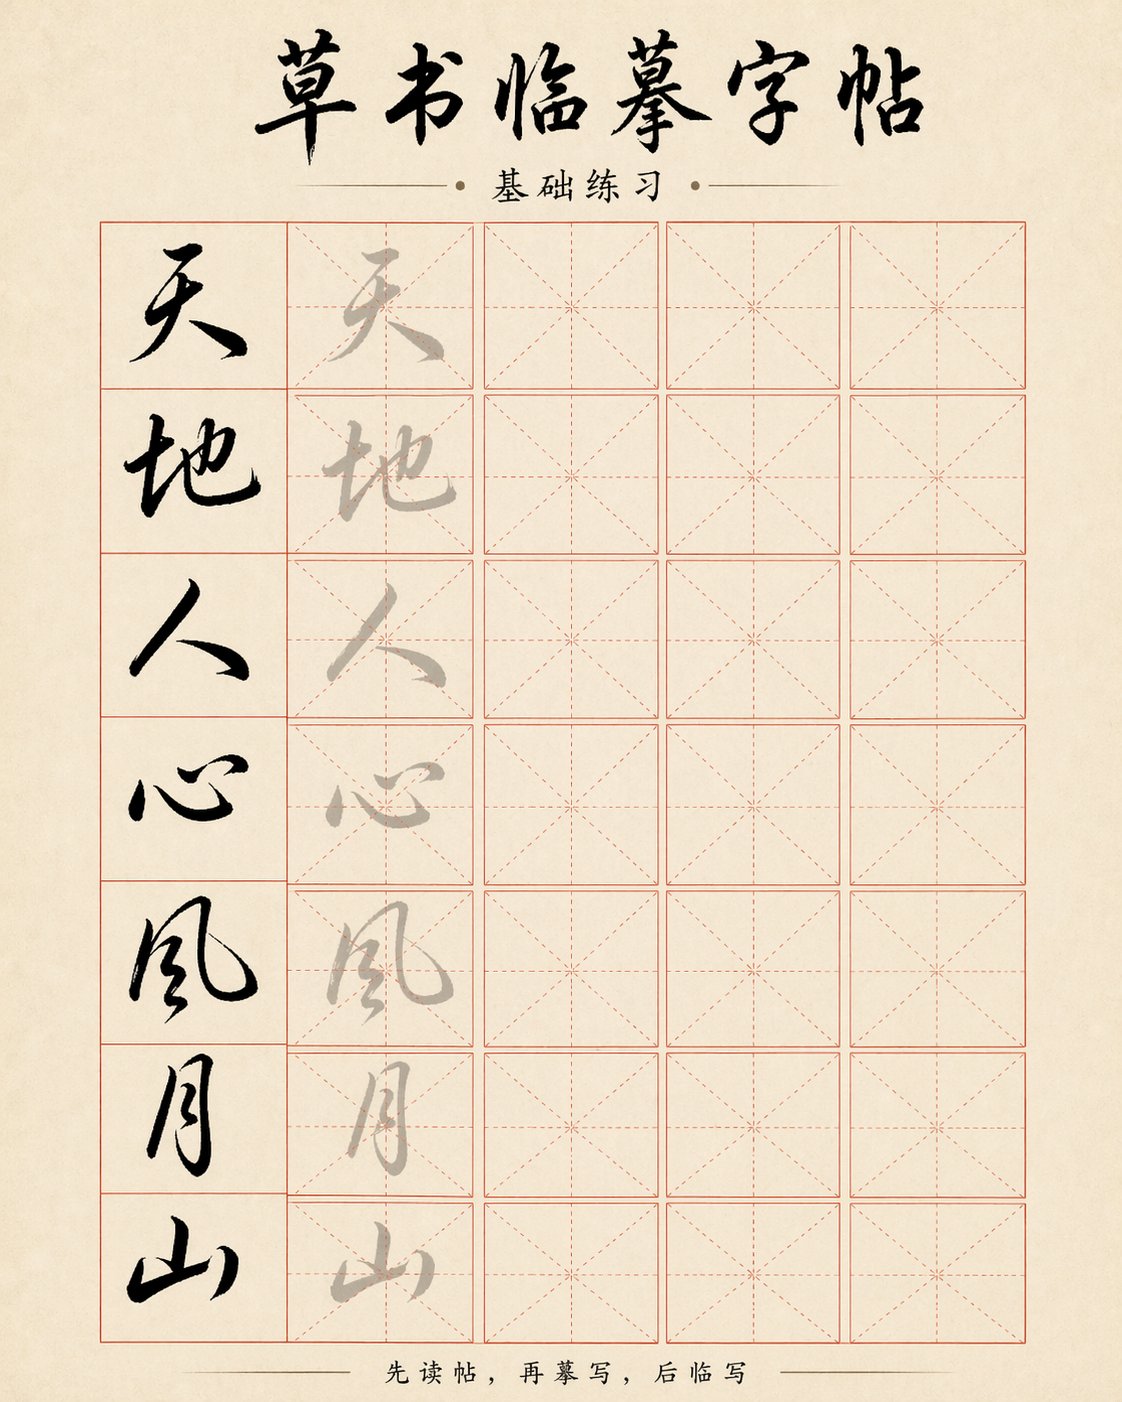 草书临摹字帖
基础练习
天 天
地 地
人 人
心 心
風 風
月 月
山 山
先读帖，再摹写，后临写